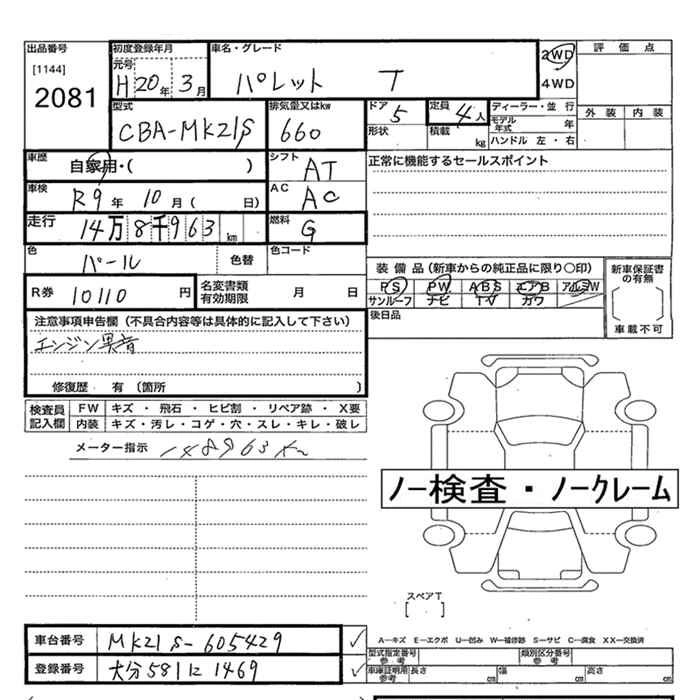 出品番号 初度登録年月 車名・グレード 2WD 評価点
[1144] 元号
2081 H 20年 3月 パレット T 4WD
型式 排気量又はkw ドア 5 定員 4人 ディーラー・並行 外装 内装
CBA-MK21S 660 形状 積載 kg モデル年式 年
ハンドル 左・右
車歴 自家用・( ) シフト AT 正常に機能するセールスポイント
車検 R9年 10月( 日) AC AC
走行 14万8千963km 燃料 G
色 パール 色替 色コード
装備品(新車からの純正品に限り○印) 新車保証書の有無
R券 10110円 名変書類有効期限 月 日 PS PW ABS エアB アルミW
サンルーフ ナビ TV カワ
後日品 車載不可
注意事項申告欄(不具合内容等は具体的に記入して下さい)
エンジン異音
修復歴 有(箇所 )
検査員記入欄 FW キズ・飛石・ヒビ割・リペア跡・X要
内装 キズ・汚レ・コゲ・穴・スレ・キレ・破レ
メーター指示 148963km
ノー検査・ノークレーム
スペアT
[ ]
A―キズ E―エクボ U―凹み W―補修跡 S―サビ C―腐食 XX―交換済
車台番号 MK21S-605429 ✓ 型式指定番号 参考 類別区分番号 参考
登録番号 大分581に1469 ✓ 車庫証明用参考 長さ cm 幅 cm 高さ cm